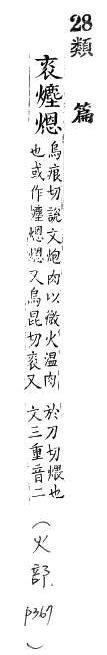 28類篇
煾
烏痕切說文炮肉以微火温肉
也或作煾煾又烏昆切又
於刀切煨也
文三重音二
(火部 p367)